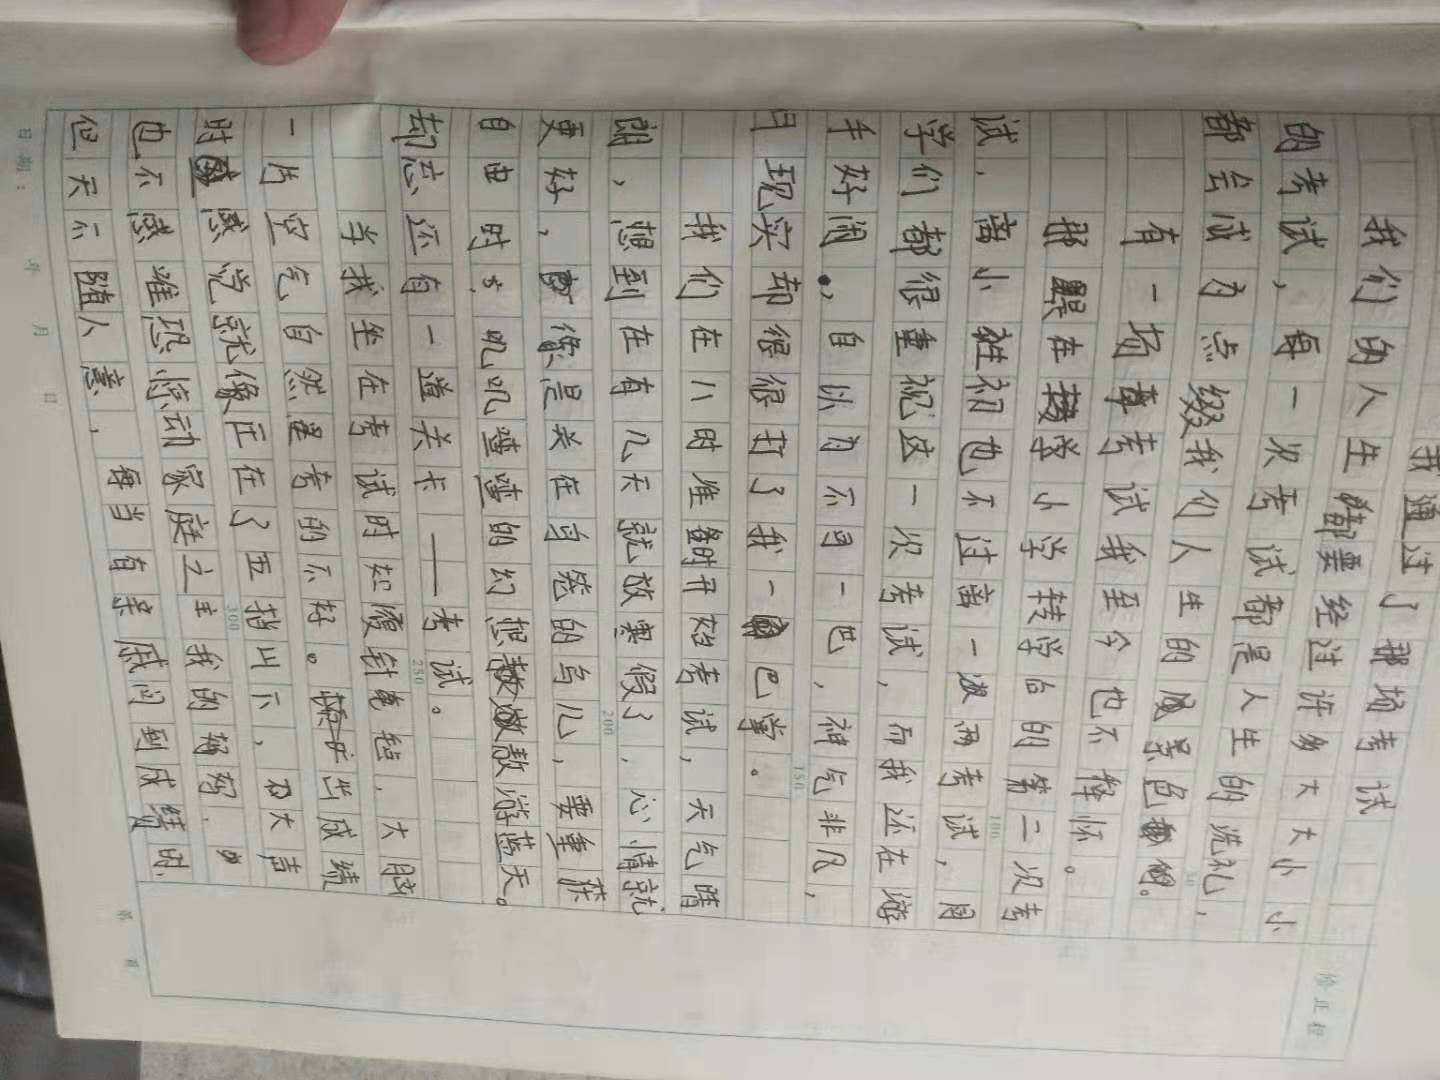 我通过了那场考试
我们的人生都要经过许多大大小小
的考试，每一次考试都是人生的洗礼，
都会成为点缀我们人生的风景色的。
有一场考试我至今也不释怀。
那是在转学小学转学后的第二次考
试，离小升初也不过离一次两考试，同
学们都很重视这一次考试，而我还在游
手好闲，自认为不同一巴，神气非凡，
现实却很很打了我一巴掌。
我们在八时准备时开始考试，天气晴
朗，想到在有几天就放寒假了，心情就
更好，像是关在鸟笼的鸟儿，要重获
自由时，叽叽喳喳的幻想敖游蓝天。
却忘还有一道关卡——考试。
当我坐在考试时如履针毡，大脑
一片空气自然是考的不好。出成绩
时感觉就像压在了五指山下，大声
也不感 唯恐惊动家庭之主我的妈妈，
但天不随人意，每当有亲戚问到成绩时
日期： 年 月 日
50
100
150
200
250
300
修正栏
第 页